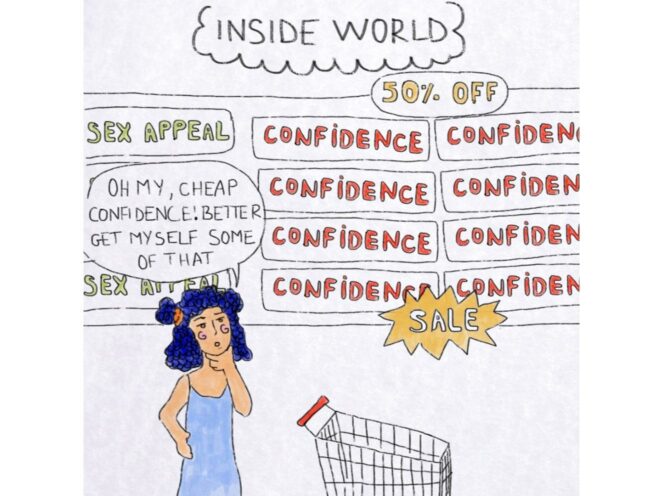 INSIDE WORLD
50% OFF
SEX APPEAL
CONFIDENCE
CONFIDEN
CONFIDENCE
CONFIDEN
OH MY, CHEAP
CONFIDENCE! BETTER
GET MYSELF SOME
OF THAT
CONFIDENCE
CONFIDEN
SEX APPEAL
CONFIDENCE
CONFIDEN
SALE